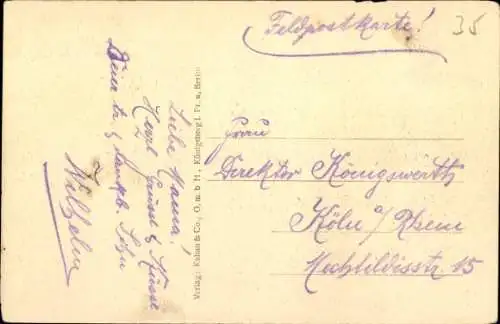 Feldpostkarte!
35
Liebe Mama!
Herzl. Grüsse & Küsse
Dein tr. & dankb. Sohn
Wilhelm
Verlag: Kahan & Co., G. m. b. H., Königsberg i. Pr. u. Berlin
Frau
Direktor Königswerth
Köln a/Rhein
Mechtildisstr. 15